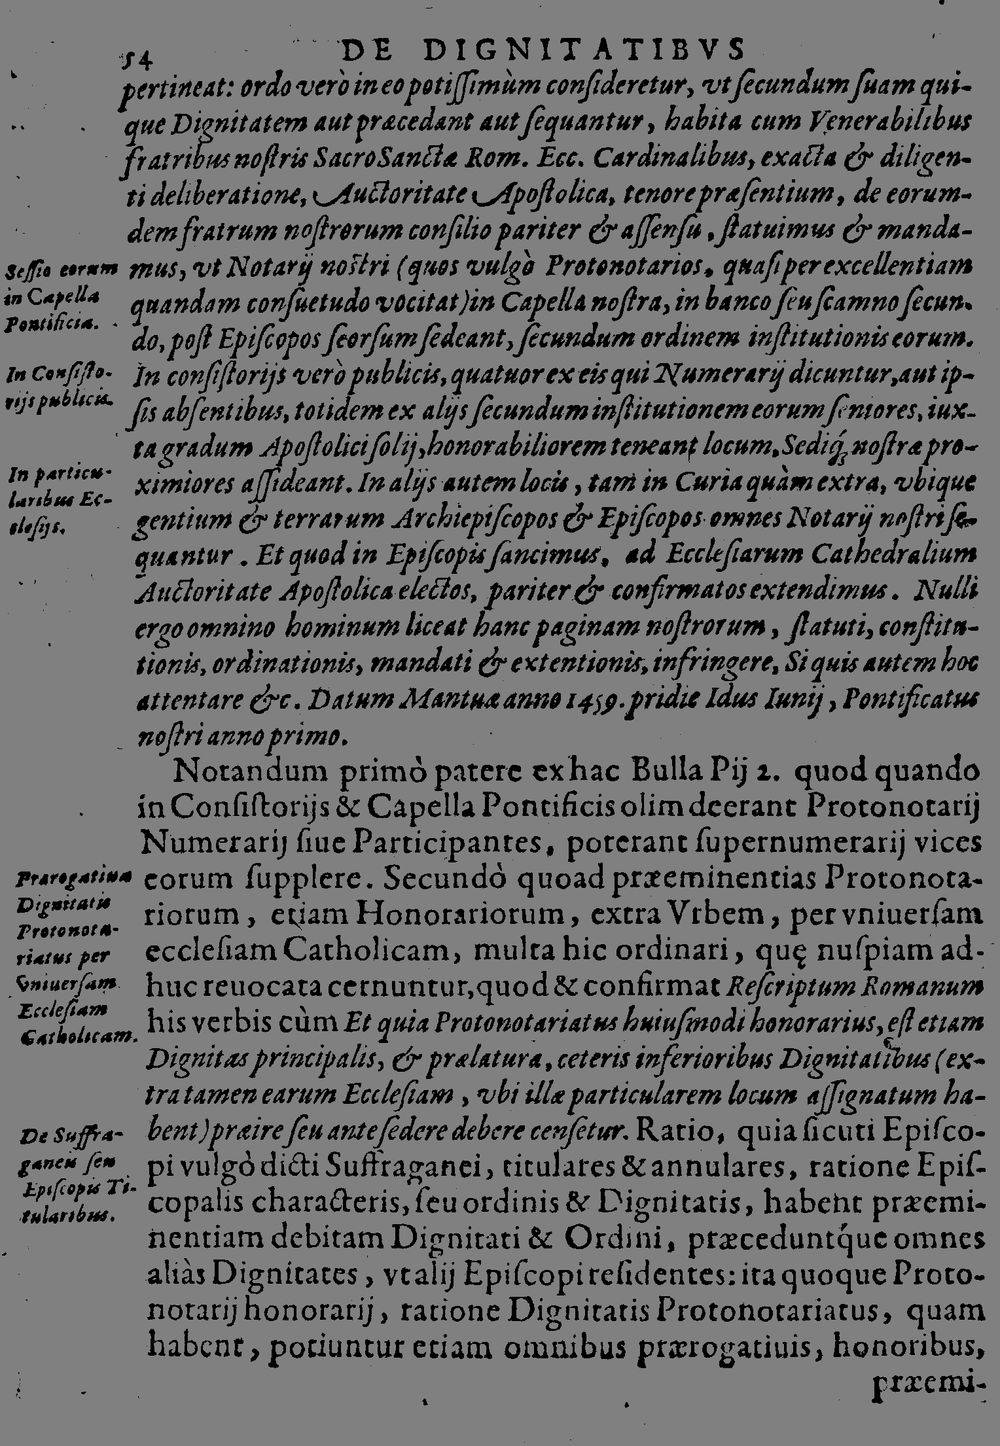 54
DE DIGNITATIBVS
pertineat: ordo verò in eo potiſſimùm conſideretur, vt ſecundum ſuam qui-
que Dignitatem aut præcedant aut ſequantur, habita cum Venerabilibus
fratribus noſtris SacroSanctæ Rom. Ecc. Cardinalibus, exacta & diligen-
ti deliberatione, Auctoritate Apoſtolica, tenore præſentium, de eorum-
dem fratrum noſtrorum conſilio pariter & aſſenſu, ſtatuimus & manda-
mus, vt Notarij noſtri (quos vulgò Protonotarios, quaſi per excellentiam
quandam conſuetudo vocitat) in Capella noſtra, in banco ſeu ſcamno ſecun-
do, poſt Epiſcopos ſeorſum ſedeant, ſecundum ordinem inſtitutionis eorum.
In conſiſtorijs verò publicis, quatuor ex eis qui Numerarij dicuntur, aut ip-
ſis abſentibus, totidem ex alijs ſecundum inſtitutionem eorum ſeniores, iux-
ta gradum Apoſtolici ſolij, honorabiliorem teneant locum, Sediq́; noſtræ pro-
ximiores aſſideant. In alijs autem locis, tam in Curia quàm extra, vbique
gentium & terrarum Archiepiſcopos & Epiſcopos omnes Notarij noſtri ſe-
quantur. Et quod in Epiſcopis ſancimus, ad Eccleſiarum Cathedralium
Auctoritate Apoſtolica electos, pariter & confirmatos extendimus. Nulli
ergo omnino hominum liceat hanc paginam noſtrorum, ſtatuti, conſtitu-
tionis, ordinationis, mandati & extentionis, infringere, Si quis autem hoc
attentare &c. Datum Mantuæ anno 1459. pridie Idus Iunij, Pontificatus
noſtri anno primo.
Seſſio eorum
in Capella
Pontificia.
In Conſiſto-
rijs publicis.
In particu-
laribus Ec-
cleſijs.
Notandum primò patere ex hac Bulla Pij 2. quod quando
in Conſiſtorijs & Capella Pontificis olim deerant Protonotarij
Numerarij ſiue Participantes, poterant ſupernumerarij vices
eorum ſupplere. Secundò quoad præeminentias Protonota-
riorum, etiam Honorariorum, extra Vrbem, per vniuerſam
eccleſiam Catholicam, multa hic ordinari, quę nuſpiam ad-
huc reuocata cernuntur, quod & confirmat Reſcriptum Romanum
his verbis cùm Et quia Protonotariatus huiuſmodi honorarius, eſt etiam
Dignitas principalis, & prælatura, ceteris inferioribus Dignitatibus (ex-
tra tamen earum Eccleſiam, vbi illæ particularem locum aſſignatum ha-
bent) præire ſeu ante ſedere debere cenſetur. Ratio, quia ſicuti Epiſco-
pi vulgò dicti Suffraganei, titulares & annulares, ratione Epiſ-
copalis characteris, ſeu ordinis & Dignitatis, habent præemi-
nentiam debitam Dignitati & Ordini, præceduntq́ue omnes
aliàs Dignitates, vt alij Epiſcopi reſidentes: ita quoque Proto-
notarij honorarij, ratione Dignitatis Protonotariatus, quam
habent, potiuntur etiam omnibus prærogatiuis, honoribus,
præemi-
Prærogatiua
Dignitatis
Protonota-
riatus per
Vniuerſam
Eccleſiam
Catholicam.
De Suffra-
ganeis ſeu
Epiſcopis Ti-
tularibus.